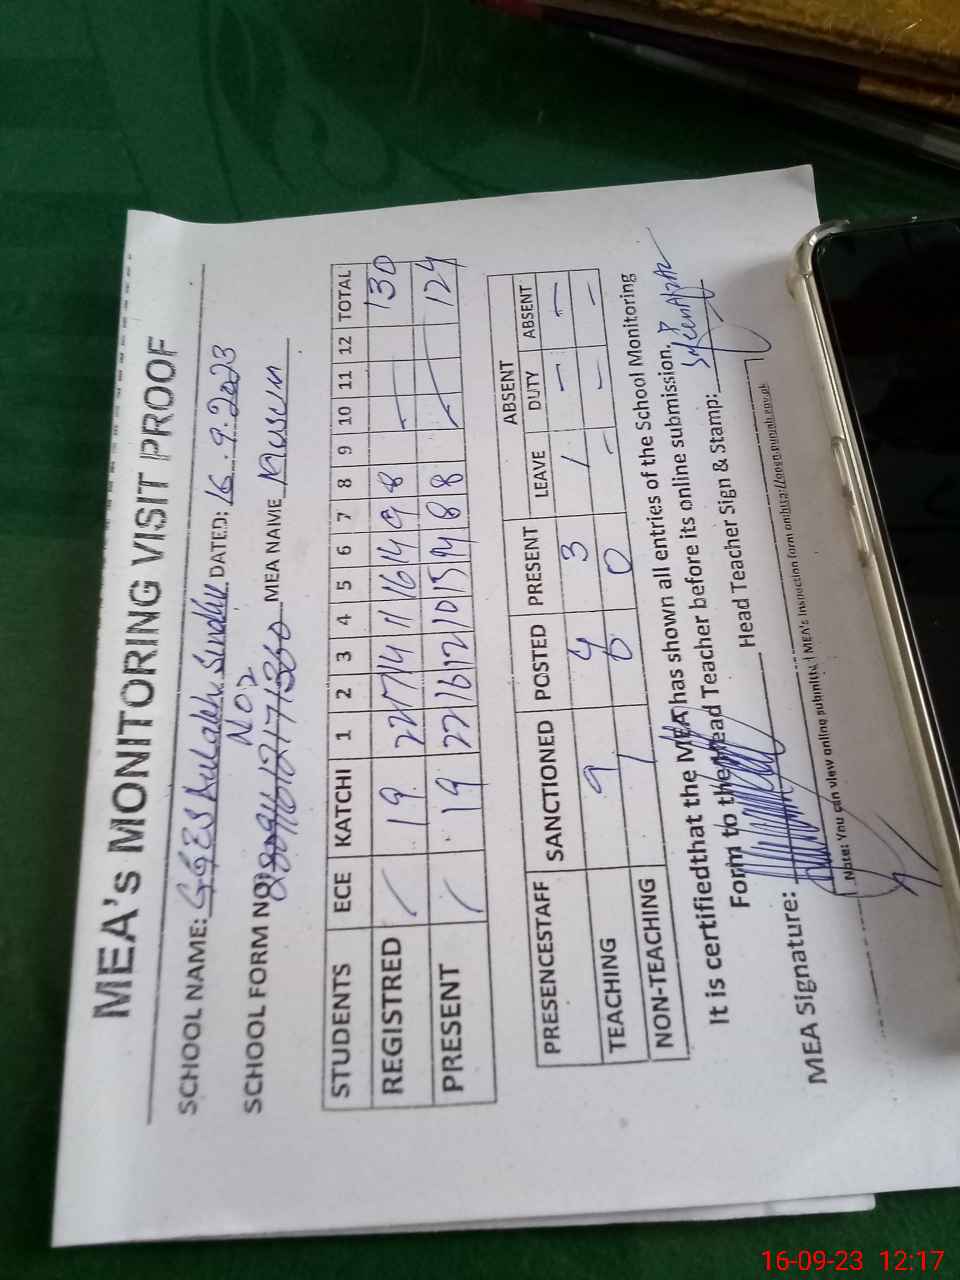 MEA's MONITORING VISIT PROOF
SCHOOL NAME: GGES DATED: 16.9.2023
No 2
SCHOOL FORM NO: MEA NAME Kusum
STUDENTS ECE KATCHI 1 2 3 4 5 6 7 8 9 10 11 12 TOTAL
REGISTRED / 19 22 17 14 11 16 14 9 8 — 130
PRESENT / 19 22 16 12 10 15 14 8 8 — 124
ABSENT
PRESENCESTAFF SANCTIONED POSTED PRESENT LEAVE DUTY ABSENT
TEACHING 9 4 3 1 — —
NON-TEACHING 1 0 0 — — —
It is certifiedthat the MEA has shown all entries of the School Monitoring
Form to the Head Teacher before its online submission.
MEA Signature: Head Teacher Sign & Stamp:
Note: You can view online submitted MEA's Inspection form on:
16-09-23 12:17